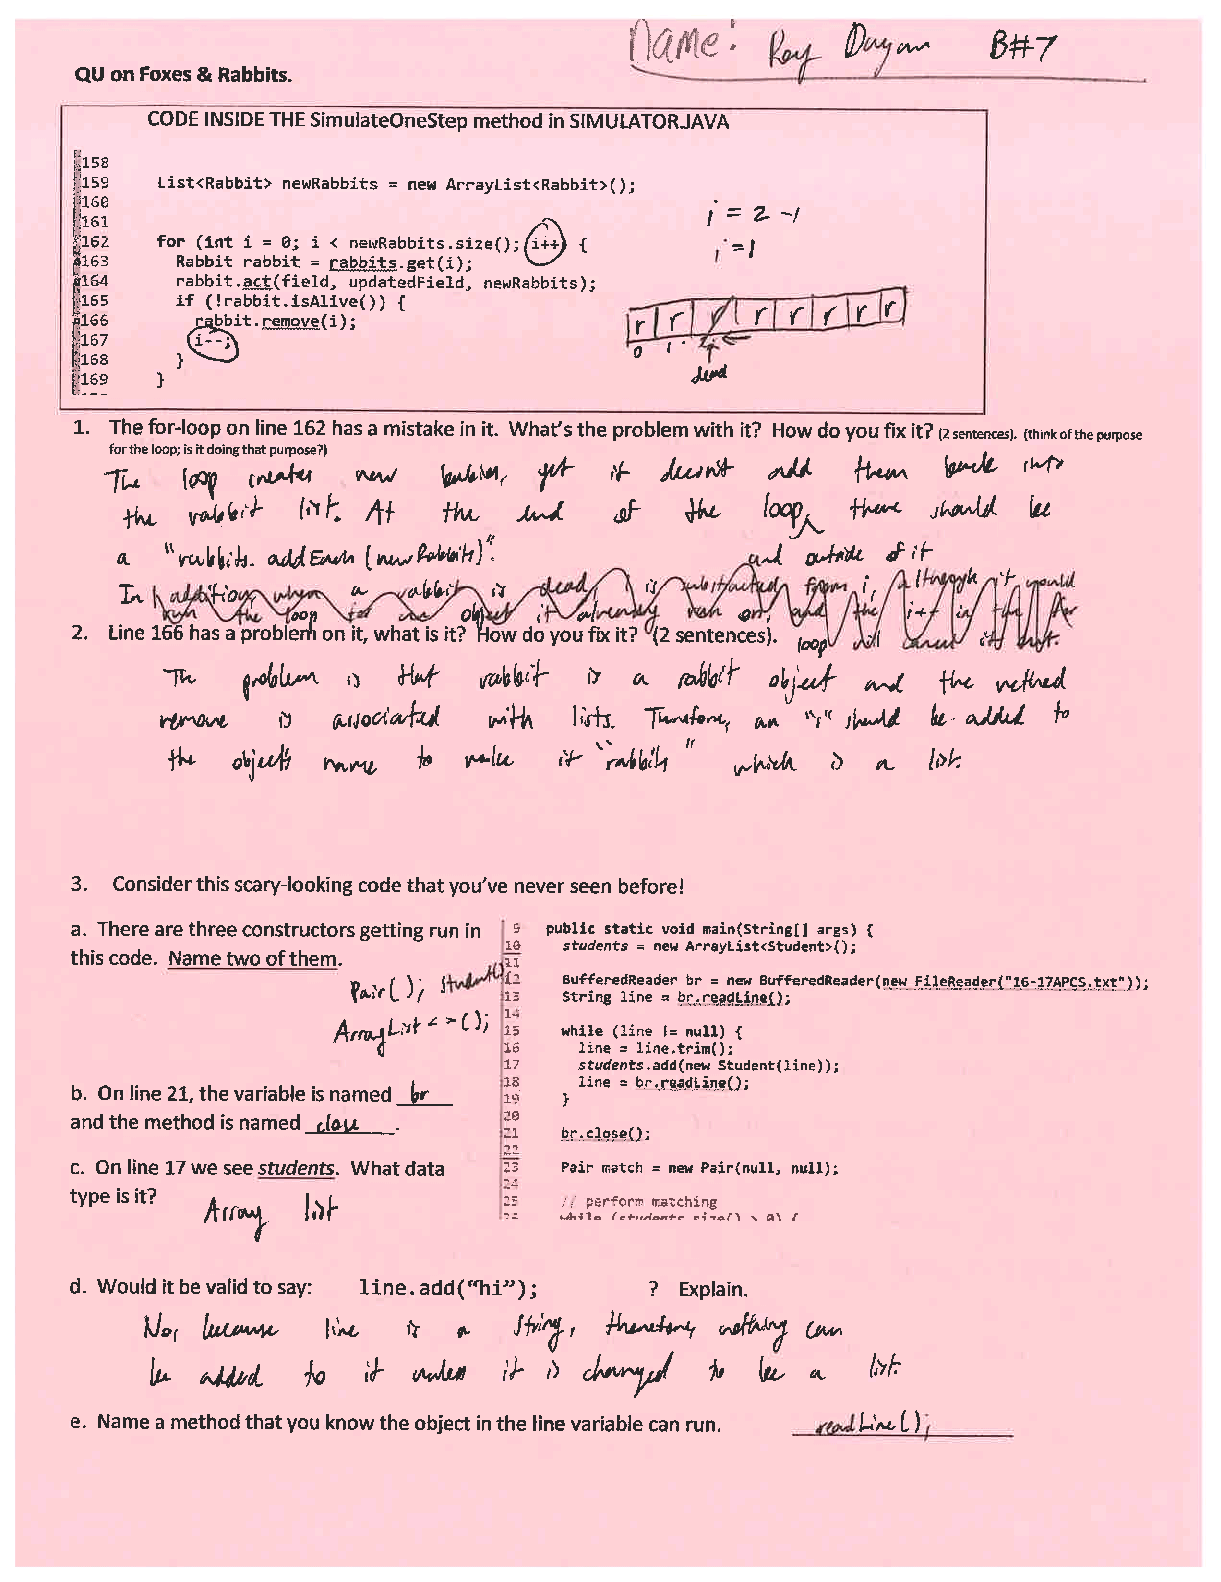 Name: Ray Dayan B#7
QU on Foxes & Rabbits.
CODE INSIDE THE SimulateOneStep method in SIMULATOR.JAVA
158
159 List<Rabbit> newRabbits = new ArrayList<Rabbit>();
160
161
162 for (int i = 0; i < newRabbits.size(); i++) {
163 Rabbit rabbit = rabbits.get(i);
164 rabbit.act(field, updatedField, newRabbits);
165 if (!rabbit.isAlive()) {
166 rabbit.remove(i);
167 i--;
168 }
169 }
i = 2 -1
i = 1
r r r r r r r r
0 1
dead
1. The for-loop on line 162 has a mistake in it. What's the problem with it? How do you fix it? (2 sentences). (think of the purpose
for the loop; is it doing that purpose?)
The loop creates new babies, yet it doesn't add them back into
the rabbit list. At the end of the loop, there should be
and outside of it
a "rabbits. addEach (newRabbits)".
In addition, when a rabbit is dead, 1 is subtracted from i, although it would
run the loop for one object it already ran on, and the i++ in the for
loop will cancel it out.
2. Line 166 has a problem on it, what is it? How do you fix it? (2 sentences).
The problem is that rabbit is a rabbit object and the method
remove is associated with lists. Therefore, an "s" should be added to
the objects name to make it "rabbits" which is a list.
3. Consider this scary-looking code that you've never seen before!
a. There are three constructors getting run in
this code. Name two of them.
Pair(); Student()
ArrayList < > ();
b. On line 21, the variable is named br
and the method is named close.
c. On line 17 we see students. What data
type is it?
Array list
9 public static void main(String[] args) {
10 students = new ArrayList<Student>();
11
12 BufferedReader br = new BufferedReader(new FileReader("16-17APCS.txt"));
13 String line = br.readLine();
14
15 while (line != null) {
16 line = line.trim();
17 students.add(new Student(line));
18 line = br.readLine();
19 }
20
21 br.close();
22
23 Pair match = new Pair(null, null);
24
25 // perform matching
while (students.size() > 0) {
d. Would it be valid to say: line.add("hi"); ? Explain.
No, because line is a string, therefore, nothing can
be added to it unless it is changed to be a list.
e. Name a method that you know the object in the line variable can run. readLine();